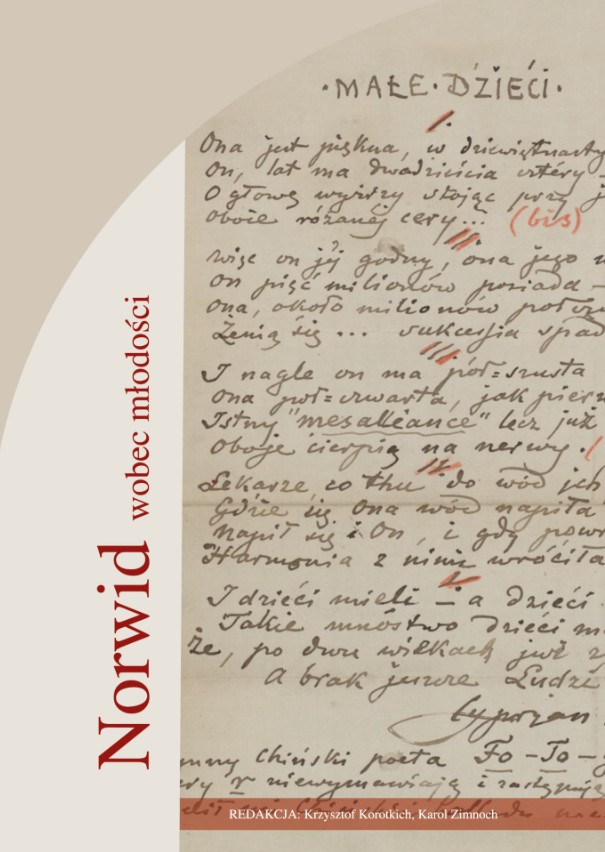 Norwid wobec młodości
·MAŁE·DZIEĆI·
I.
Ona jest piękna, w dziewiętnasty
On, lat ma dwadzieścia cztéry –
O głowę wyższy stojąc przy j
oboie różanéj cery... (bis)
II.
więc on jéj godny, ona jego
on pięć milionów posiada –
ona, około milionów
Żenią się ... sukcesja spad
III.
I nagle on ma pół=szosta
ona poł=czwarta, jak pierw
Istny "mesalléance" lecz już
oboje cierpią na nerwy. (
IV.
Lekarze, co tku do wód ich
Gdzie się Ona wód napiła
napił się i On, i gdy powr
Harmonia z nimi wróciła
V
I dzieći mieli – a dzieći
Takie mnóstwo dzieći m
że, po dwu wiekach już
A brak jeszcze Ludzi
Cyprjan
mny Chiński poeta Fo-To-
r niewymawiają i zastępują
REDAKCJA: Krzysztof Korotkich, Karol Zimnoch